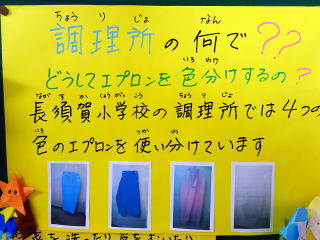 ちょうりじょ なん
調理所の何で??
いろ わけ
どうしてエプロンを色分けするの?
ながすかしょうがっこう ちょうりじょ
長須賀小学校の調理所では4つの
いろ つか わ
色のエプロンを使い分けています